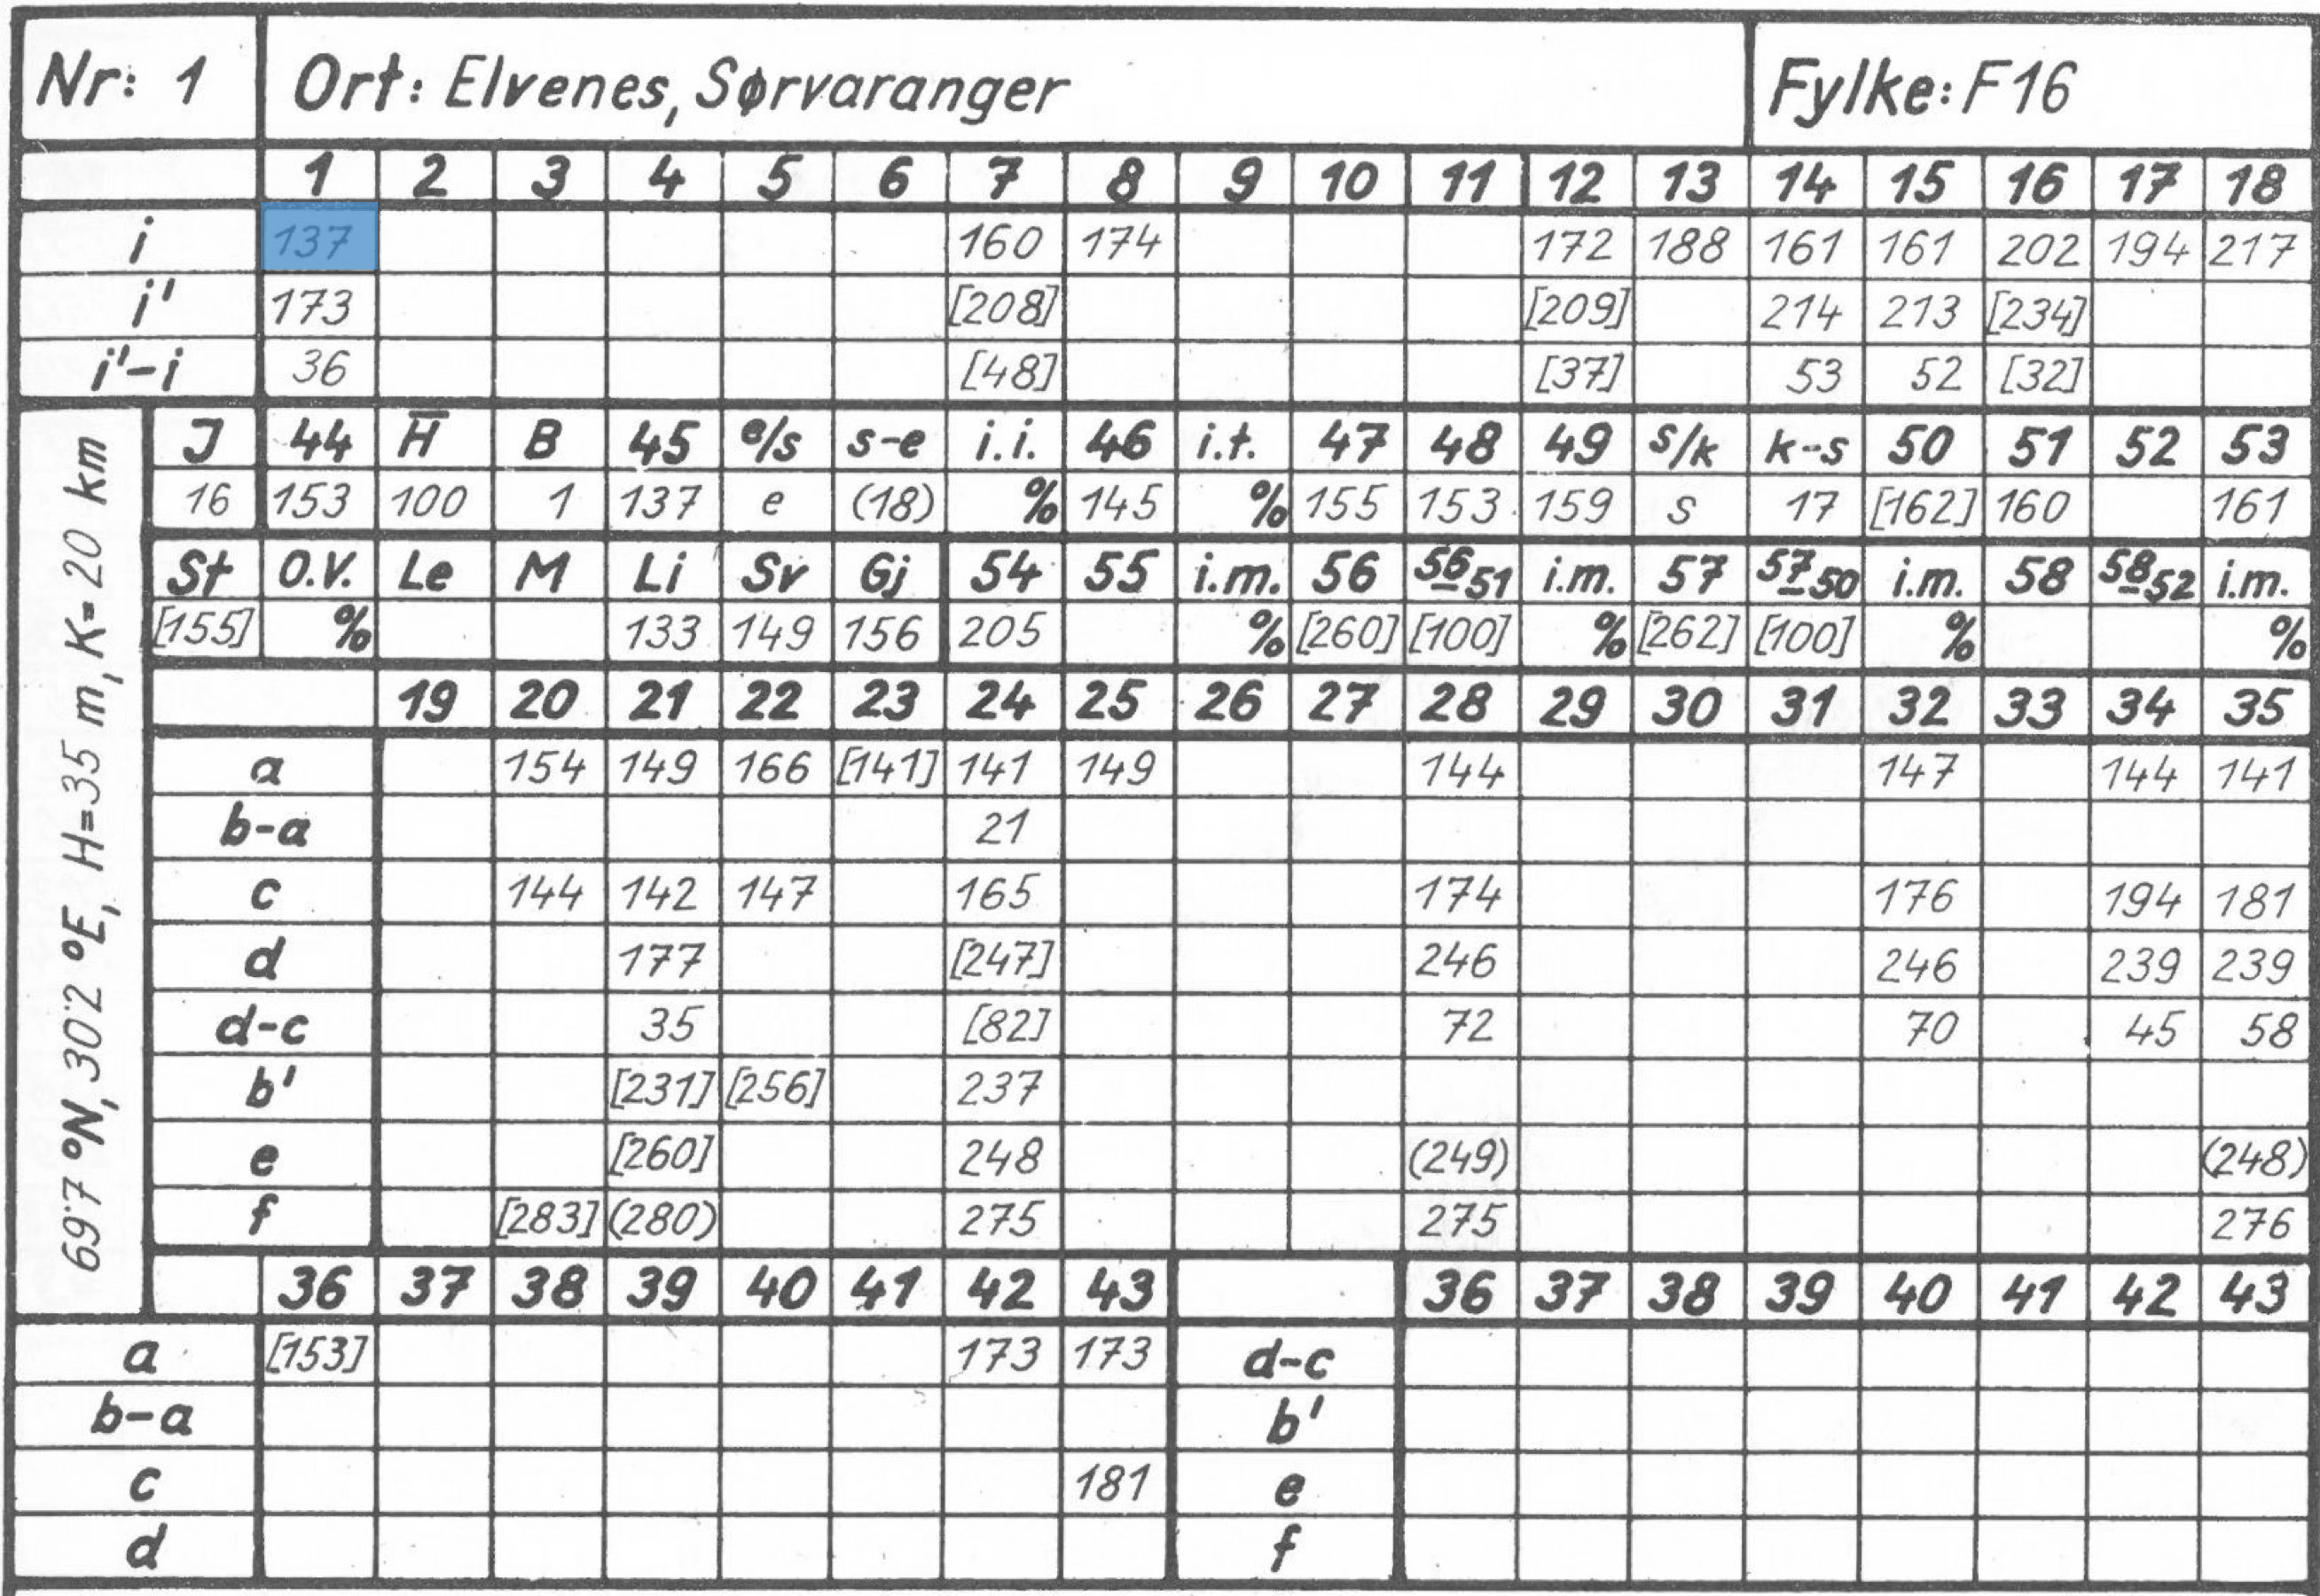 Nr: 1 Ort: Elvenes, Sørvaranger Fylke: F16
1 2 3 4 5 6 7 8 9 10 11 12 13 14 15 16 17 18
i 137 160 174 172 188 161 161 202 194 217
i' 173 [208] [209] 214 213 [234]
i'-i 36 [48] [37] 53 52 [32]
69.7 °N, 30.2 °E, H=35 m, K=20 km
J 44 H̅ B 45 e/s s-e i.i. 46 i.t. 47 48 49 s/k k-s 50 51 52 53
16 153 100 1 137 e (18) % 145 % 155 153 159 s 17 [162] 160 161
St O.V. Le M Li Sv Gj 54 55 i.m. 56 56-51 i.m. 57 57-50 i.m. 58 58-52 i.m.
[155] % 133 149 156 205 % [260] [100] % [262] [100] % %
19 20 21 22 23 24 25 26 27 28 29 30 31 32 33 34 35
a 154 149 166 [141] 141 149 144 147 144 141
b-a 21
c 144 142 147 165 174 176 194 181
d 177 [247] 246 246 239 239
d-c 35 [82] 72 70 45 58
b' [231] [256] 237
e [260] 248 (249) (248)
f [283] (280) 275 275 276
36 37 38 39 40 41 42 43 36 37 38 39 40 41 42 43
a [153] 173 173 d-c
b-a b'
c 181 e
d f